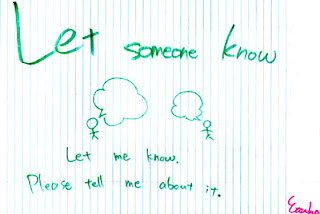 Let someone know
Let me know.
Please tell me about it.